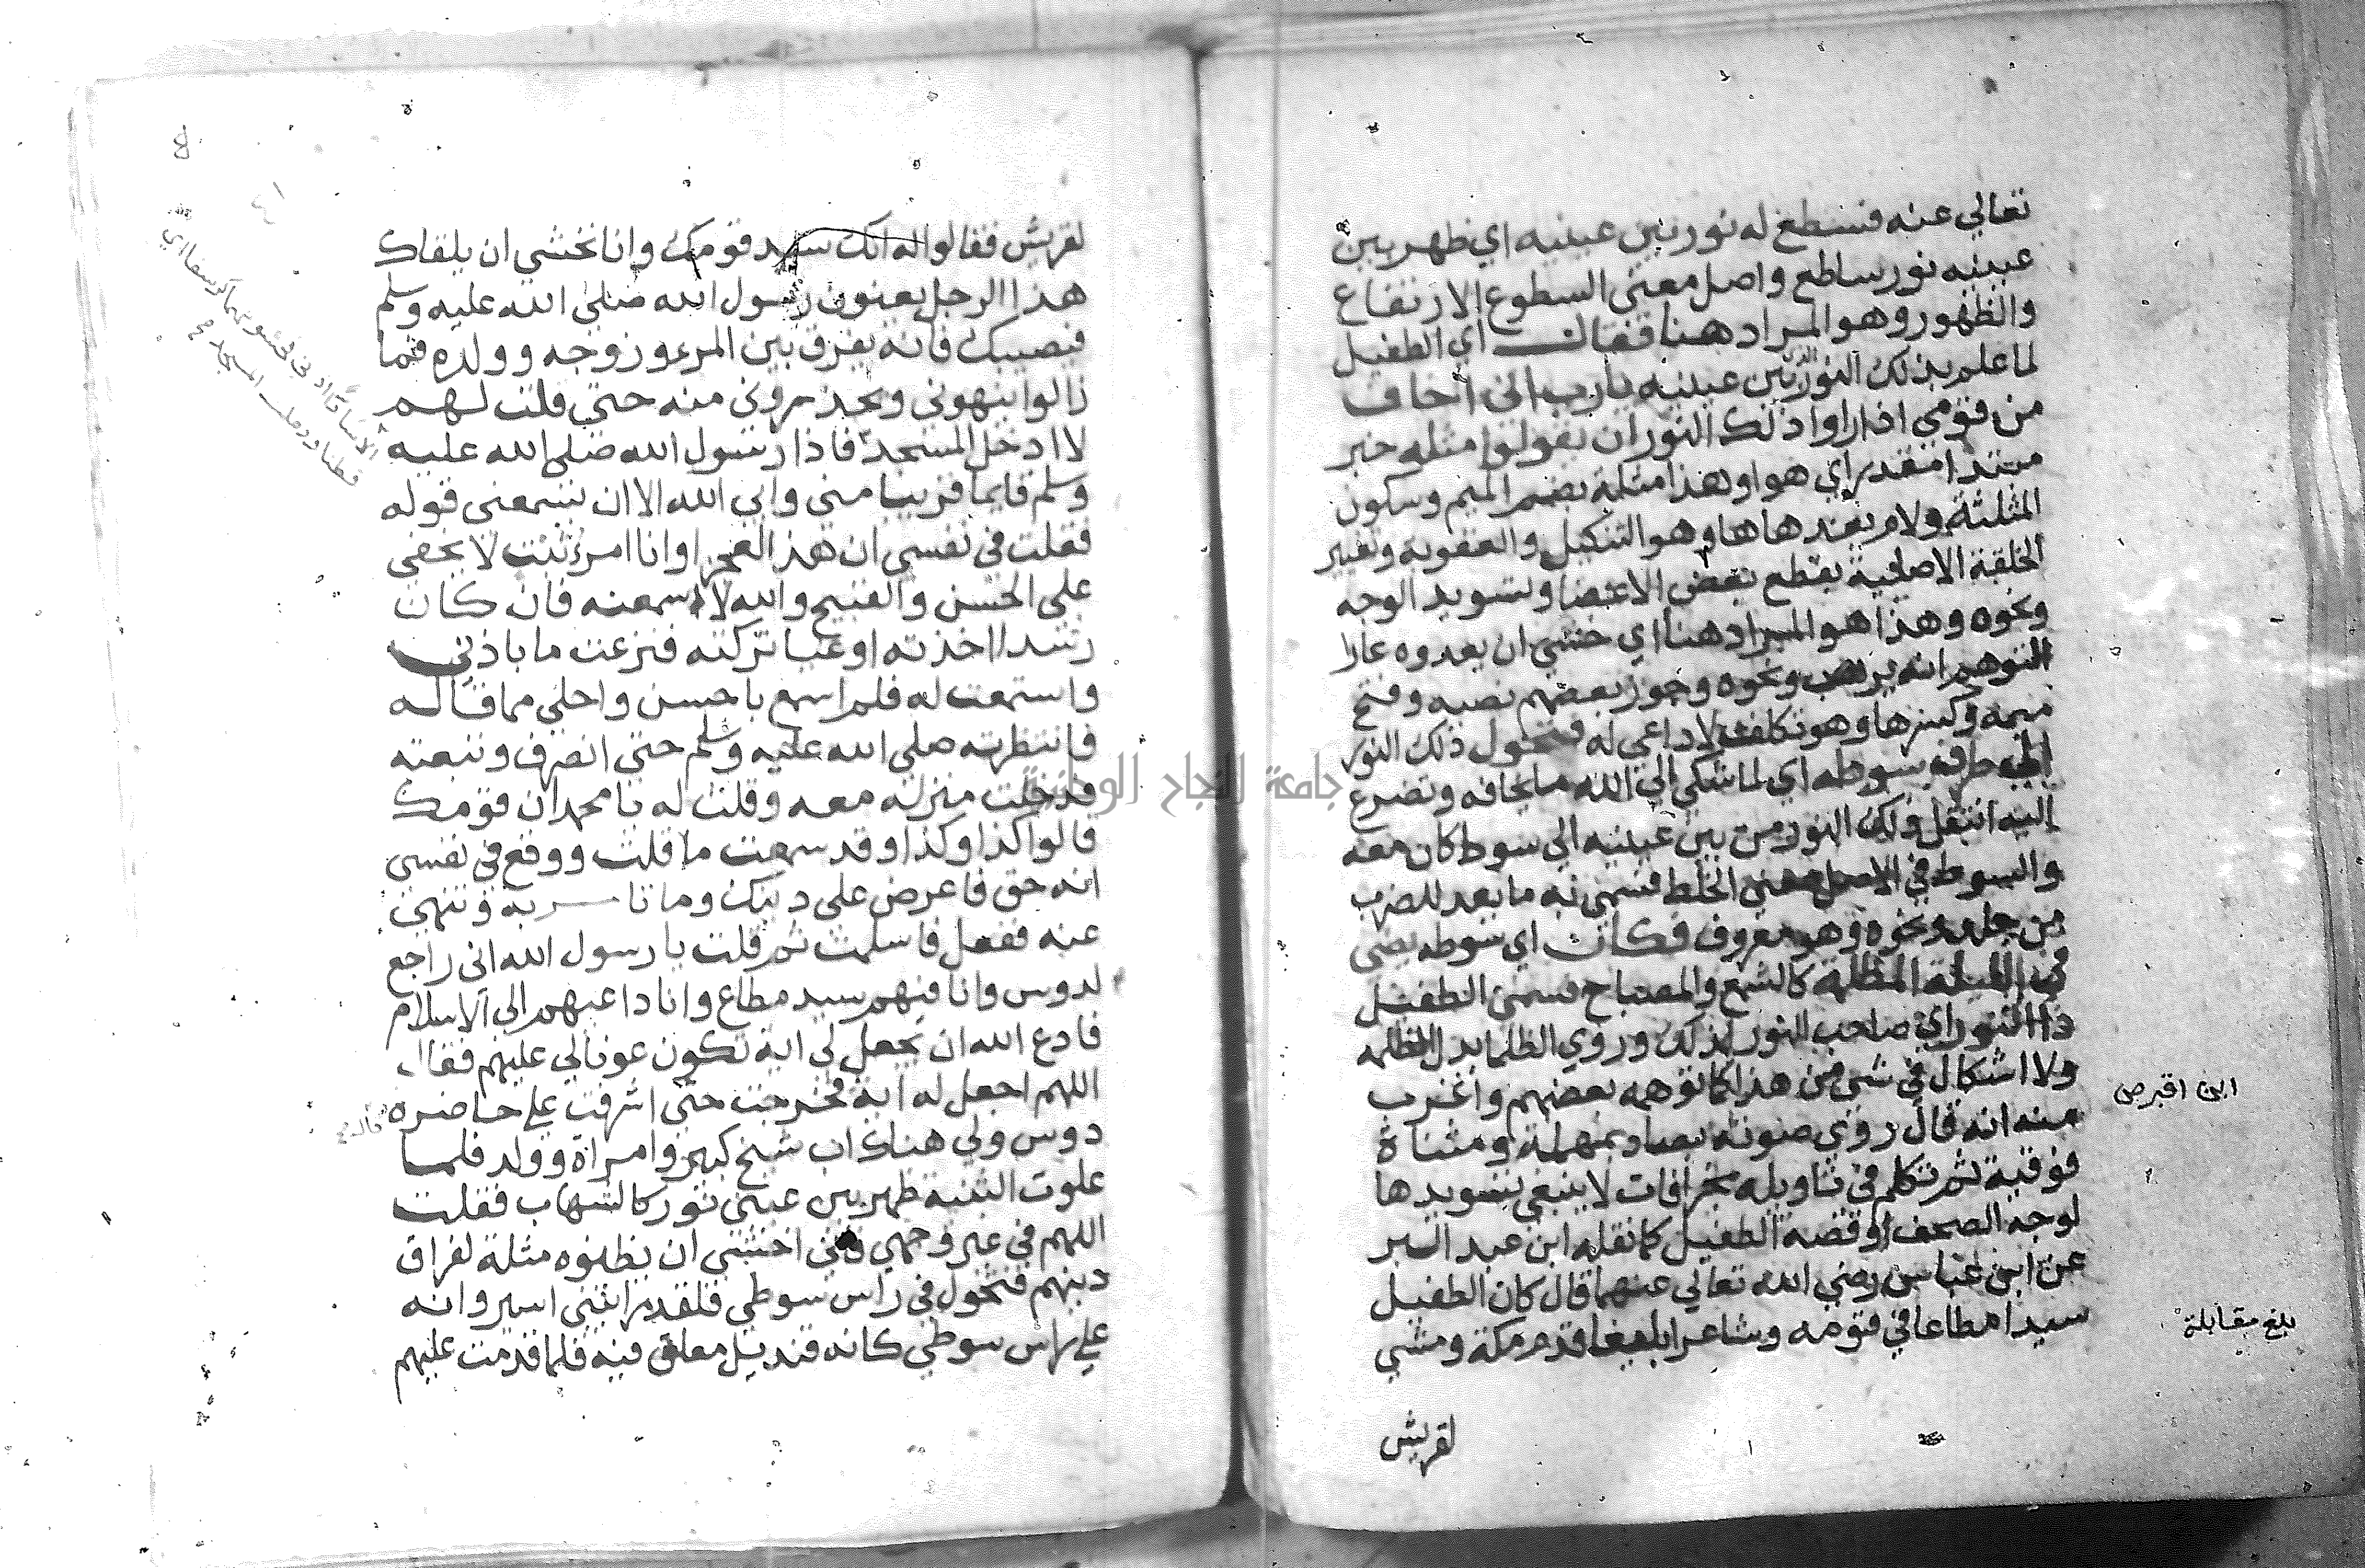 تعالي عنه فسطع له نور بين عينيه اي ظهر بين
عينيه نور ساطع واصل معنى السطوع الارتفاع
والظهور وهو المراد هنا فقال اي الطفيل
لما علم بذلك النور بين عينيه يا رب اني اخاف
من قومي اذا راوا ذلك النور ان يقولوا مثلة خبر
مبتدا مقدر اي هو او هذا مثلة بضم الميم وسكون
المثلثة ولام بعدها هاء وهو التنكيل والعقوبة وتغيير
الخلقة الاصلية بقطع بعض الاعضا وتسويد الوجه
ونحوه وهذا هو المراد هنا اي خشي ان يعدوه عارا
لتوهم انه برص ونحوه وجوز بعضهم نصبه وفتح
ميمه وكسرها وهو تكلف لا داعي له فتحول ذلك النور
الي طرف سوطه اي لما شكي الي الله ما يخافه وتضرع
اليه انتقل ذلك النور من بين عينيه الي سوط كان معه
والسوط في الاصل معني الخلط فسمي به ما يعد للضرب
من جلد ونحوه وهو معروف فكان اي سوطه يضي
في الليلة المظلمة كالشمع والمصباح فسمي الطفيل
ذا النور اي صاحب النور لذلك وروي الظلما بدل المظلمه
ولا اشكال في شي من هذا كما توهمه بعضهم واغرب
منه انه قال روي صوته بصاد مهملة ومثناة
فوقية ثم تكلم في تاويله بخرافات لا ينبغي تسويدها
لوجه الصحف وقصة الطفيل كما نقله ابن عبد البر
عن ابن عباس رضي الله تعالي عنهما قال كان الطفيل
سيدا مطاعا في قومه وشاعرا بليغا قدم مكة ومشي
لقريش
ابن اقبرص
بلغ مقابلة
لقريش فقالوا له انك سيد قومك وانا نخشي ان يلقاك
هذا الرجل يعنون رسول الله صلى الله عليه وسلم
فيصيبك فانه يفرق بين المرء وزوجه وولده فما
زالوا ينهوني ويحذروني منه حتي قلت لهم
لا ادخل المسجد فاذا رسول الله صلى الله عليه
وسلم قايما قريبا مني وابي الله الا ان يسمعني قوله
فقلت في نفسي ان هذا العجز وانا امرء ثبت لا يخفي
علي الحسن والقبيح والله لاسمعنه فان كان
رشدا اخذته او غيا تركته فنزعت ما باذني
واستمعت له فلم اسمع باحسن واحلي مما قاله
فانتظرته صلى الله عليه وسلم حتى انصرف وتبعته
فدخلت منزله معه وقلت له يا محمد ان قومك
قالوا كذا وكذا وقد سمعت ما قلت ووقع في نفسي
انه حق فاعرض علي دينك وما تامر به وتنهي
عنه ففعل فاسلمت ثم قلت يا رسول الله اني راجع
لدوس وانا فيهم سيد مطاع وانا داعيهم الى الاسلام
فادع الله ان يجعل لي اية تكون عونا لي عليهم فقال
اللهم اجعل له اية فخرجت حتى اشرفت علي حاضرة
دوس ولي هناك اب شيخ كبير وامراة وولد فلما
علوت الثنية ظهر بين عيني نور كالشهاب فقلت
اللهم في غير وجهي فاني اخشي ان يظنوه مثلة لفراق
دينهم فتحول في راس سوطي فلقد رايتني اسير وانه
علي راس سوطي كانه قنديل معلق فيه فلما قدمت عليهم
جامعة النجاح الوطنية